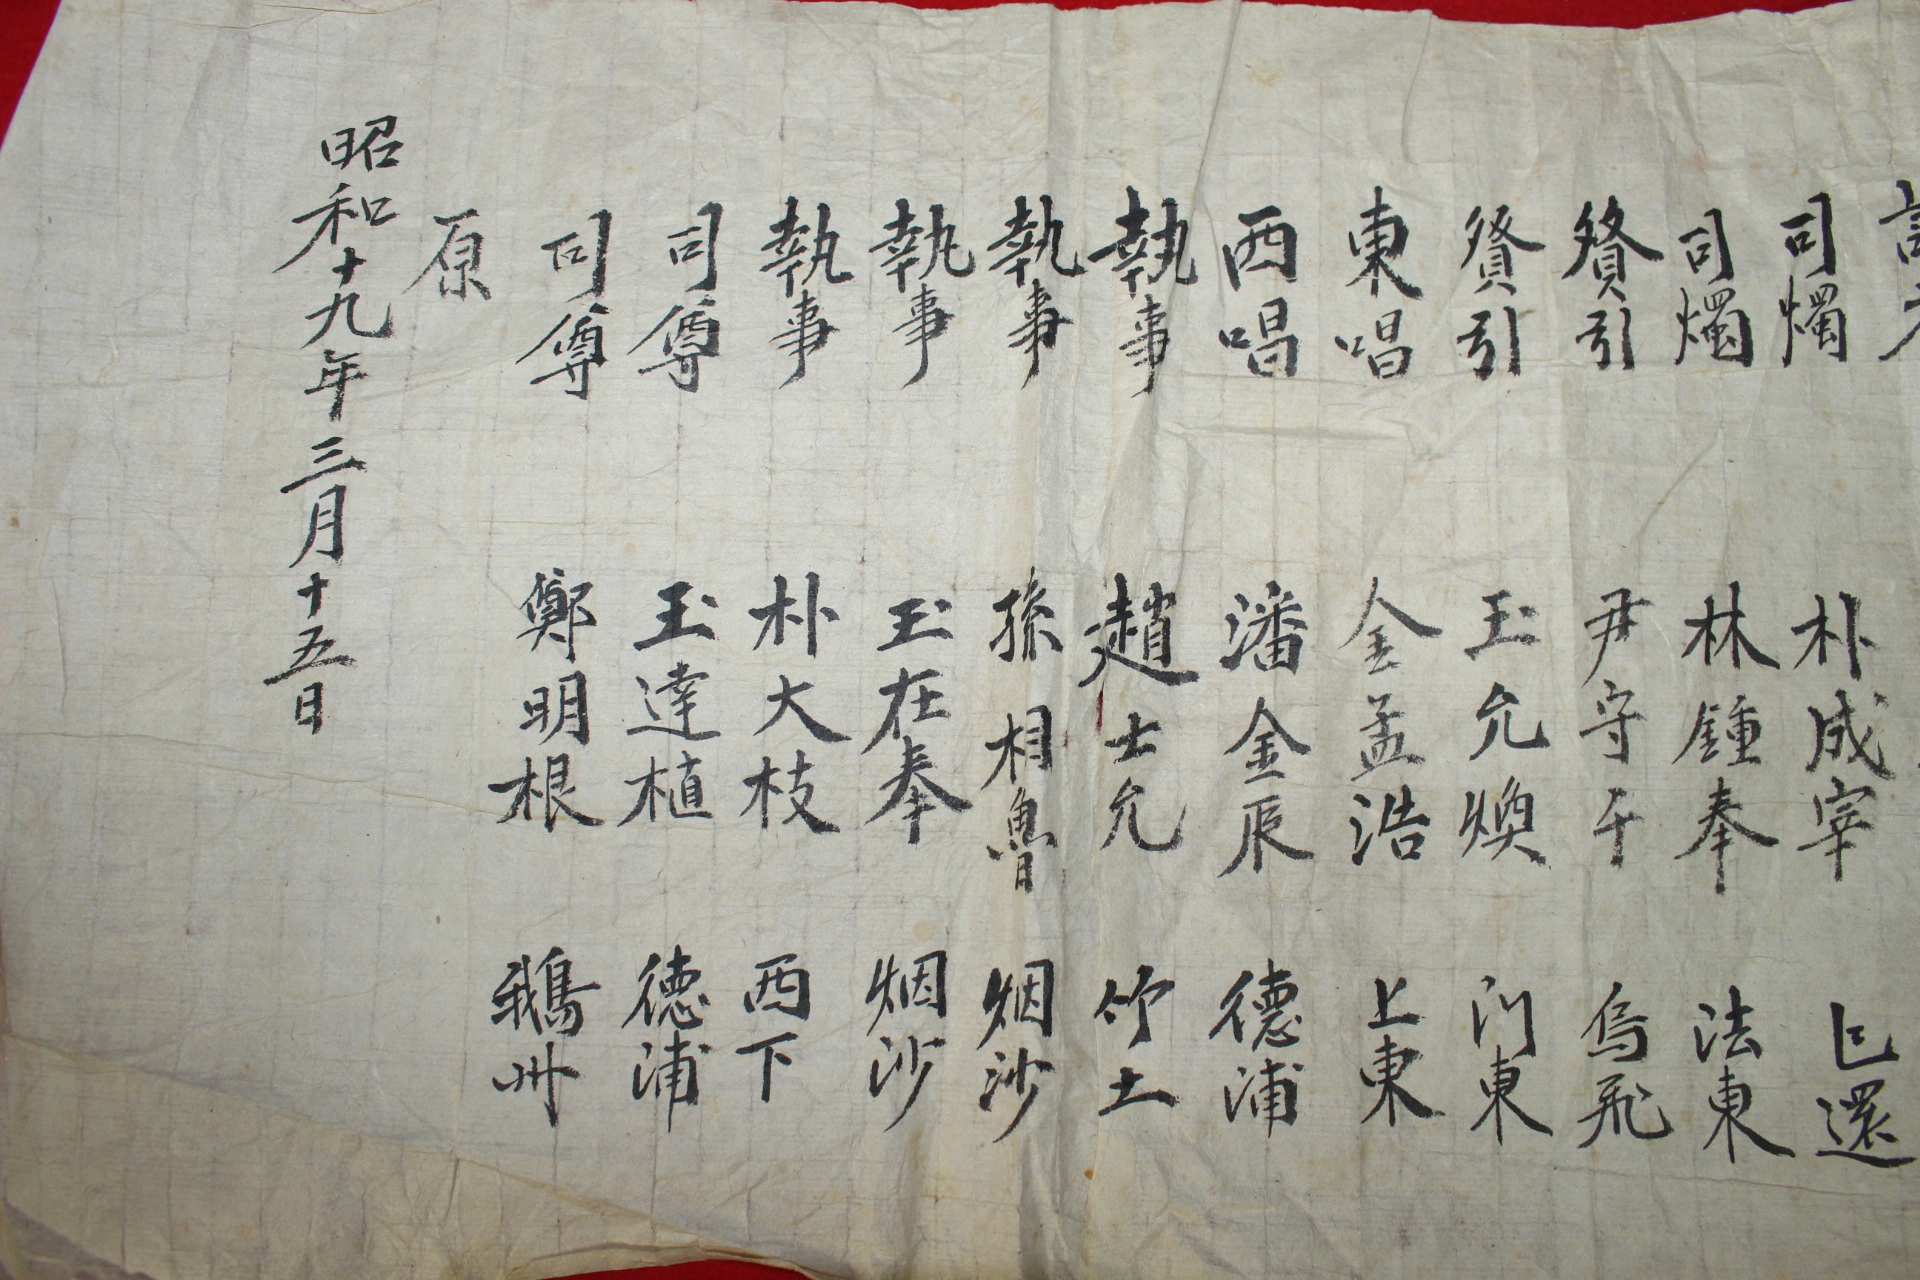 司燭 朴成宰 㔾還
司燭 林鍾奉 法東
賛引 尹守千 烏飛
賛引 玉允煥 门東
東唱 金孟浩 上東
西唱 潘金辰 德浦
執事 趙士允 竹土
執事 孫相魯 烟沙
執事 玉在奉 烟沙
執事 朴大枝 西下
司尊 玉達植 德浦
司尊 鄭明根 鵝州
原
昭和十九年三月十五日